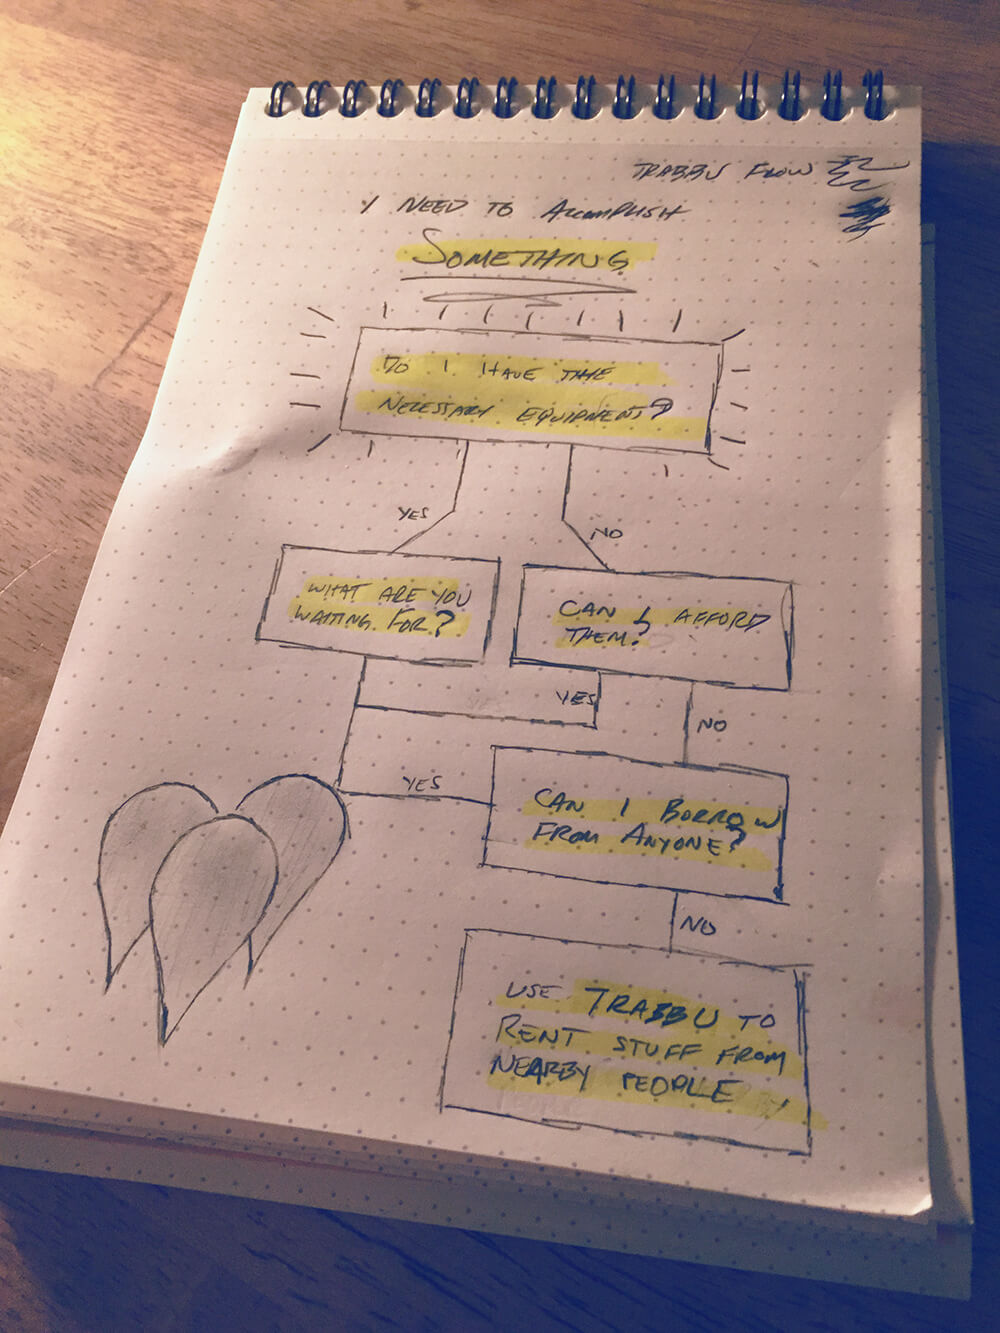 TRABBU FLOW
I NEED TO ACCOMPLISH
SOMETHING
DO I HAVE THE
NECESSARY EQUIPMENT?
YES
NO
WHAT ARE YOU
WAITING FOR?
CAN I AFFORD
THEM?
YES
NO
YES
CAN I BORROW
FROM ANYONE?
NO
USE TRABBU TO
RENT STUFF FROM
NEARBY PEOPLE